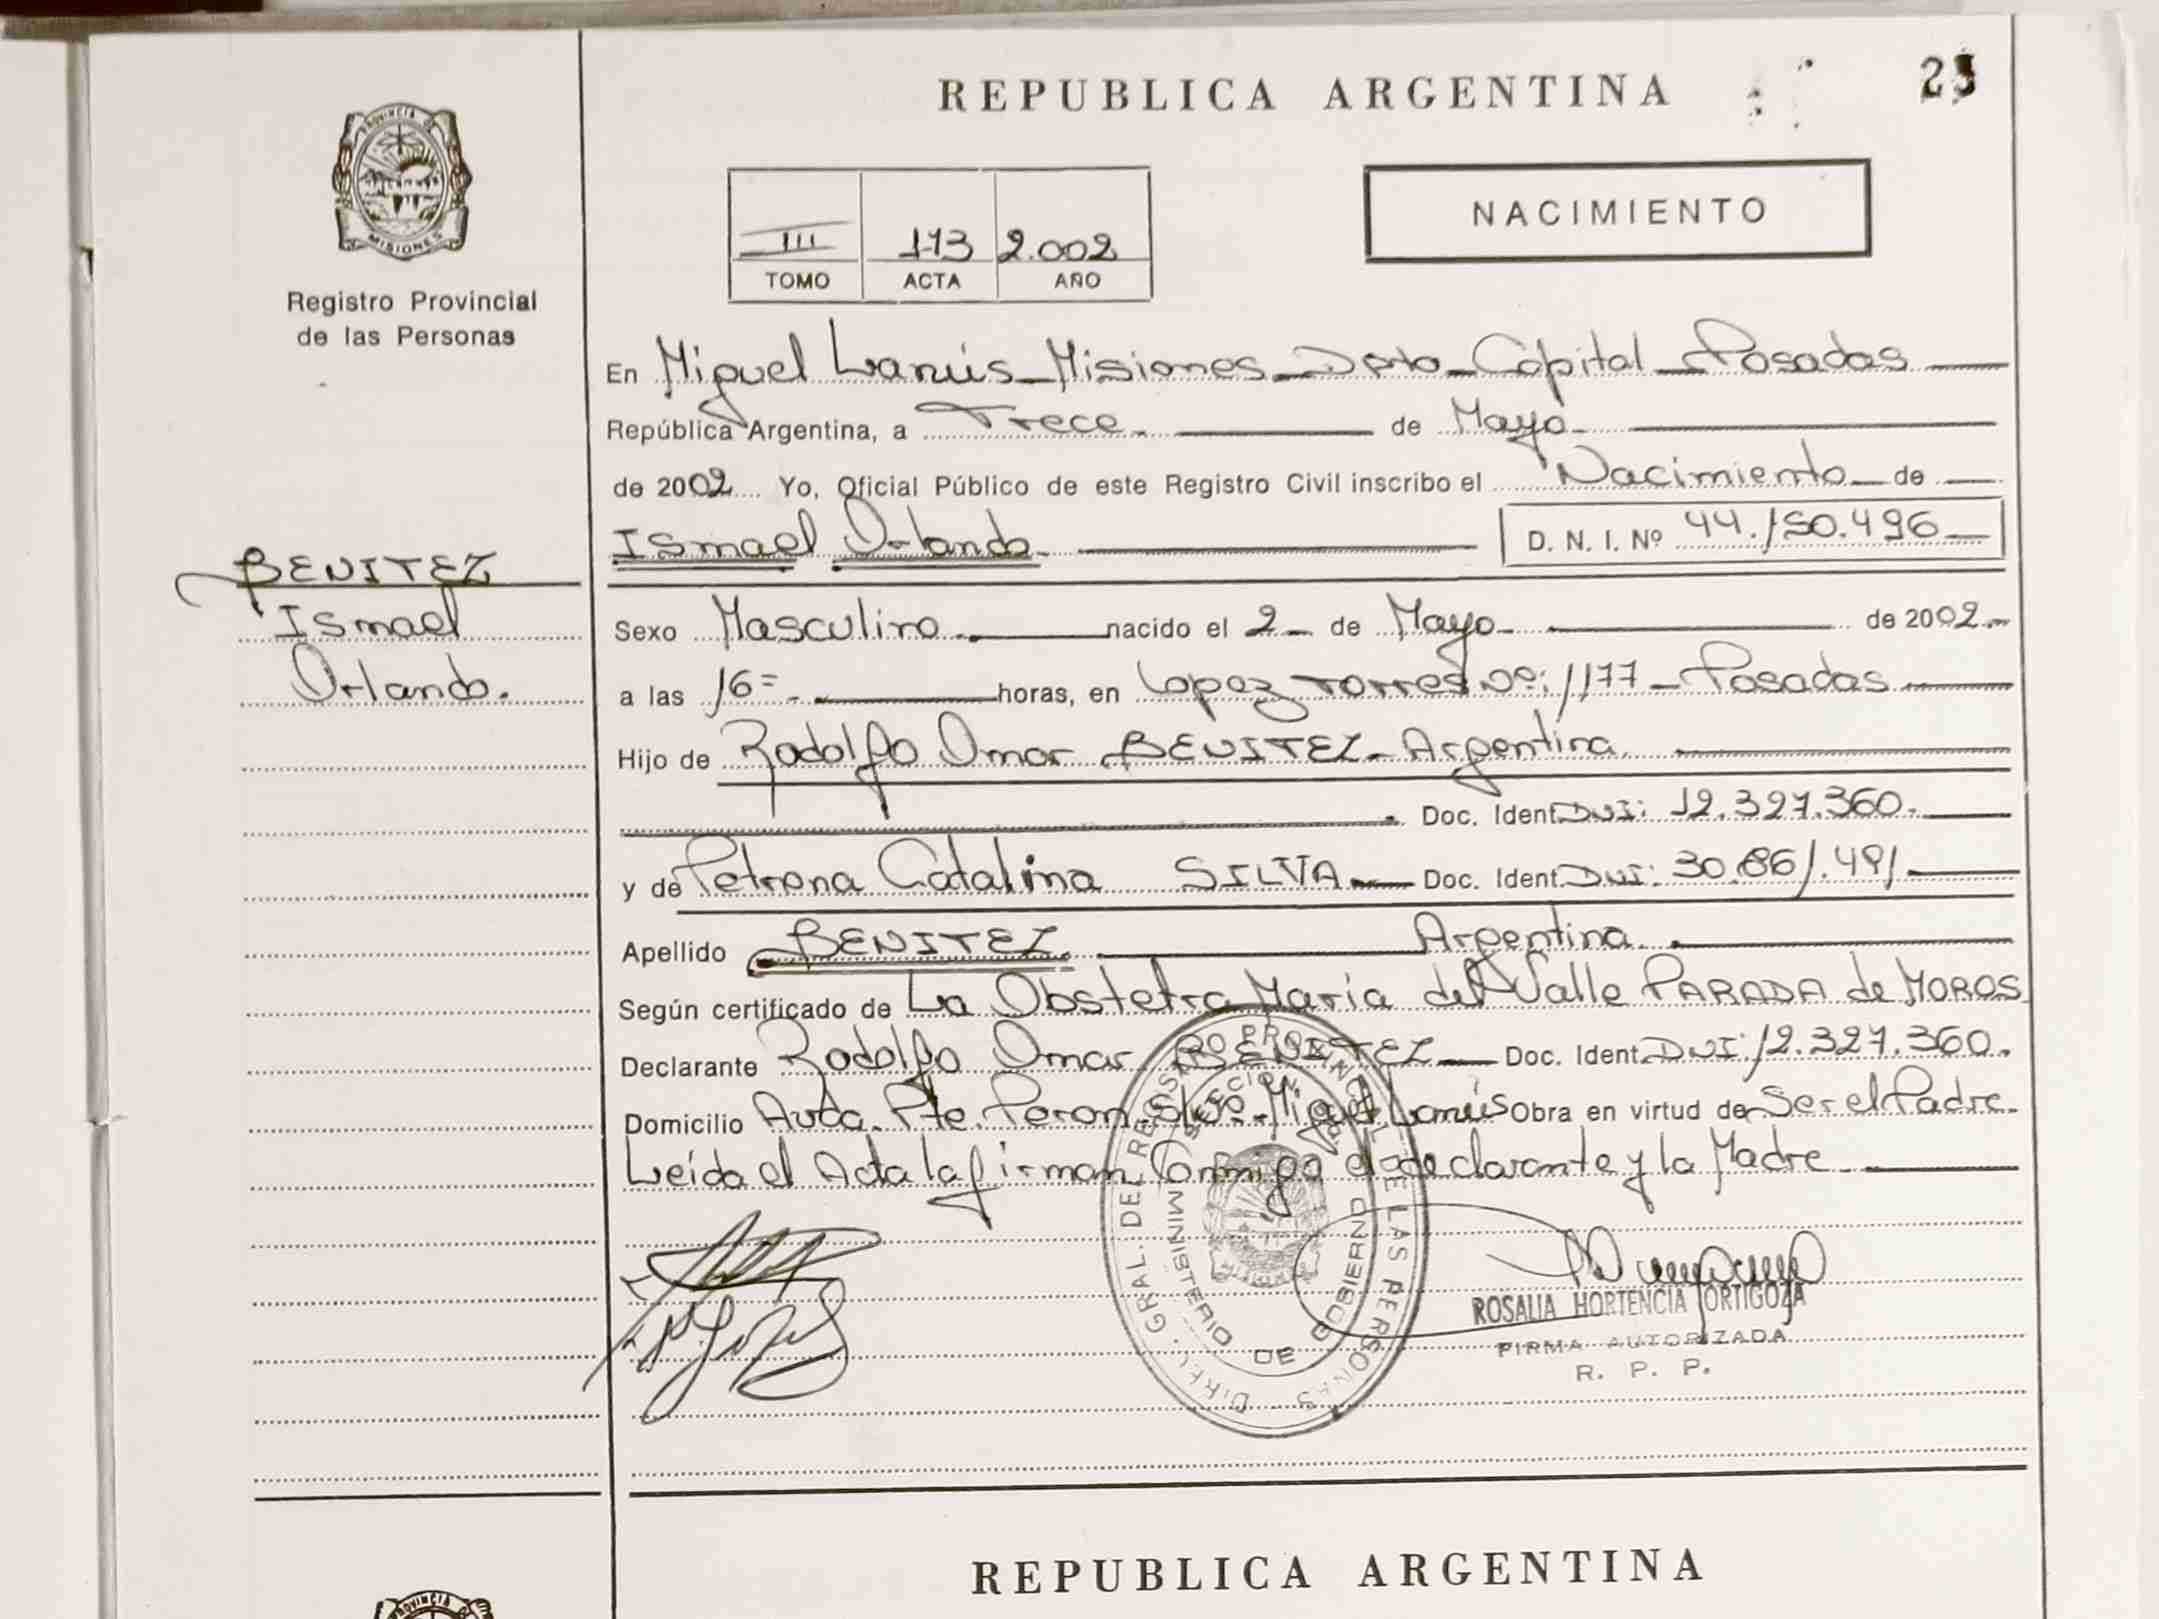 REPUBLICA ARGENTINA
PROVINCIA DE
MISIONES
Registro Provincial
de las Personas
III 113 2.002
TOMO ACTA AÑO
NACIMIENTO
En Miguel Lanús - Misiones - Dpto - Capital - Posadas
República Argentina, a Trece de Mayo
de 2002 Yo, Oficial Público de este Registro Civil inscribo el Nacimiento de
Ismael Orlando D. N. I. Nº 44.150.496
BENITEZ
Ismael
Orlando.
Sexo Masculino nacido el 2 de Mayo de 2002
a las 16= horas, en Lopez Torres Nº: 1177 - Posadas
Hijo de Rodolfo Omar BENITEZ - Argentina
Doc. Ident DNI: 12.327.360.
y de Petrona Catalina SILVA Doc. Ident DNI: 30.861.491
Apellido BENITEZ Argentina
Según certificado de La Obstetra Maria del Valle PARADA de MOROS
Declarante Rodolfo Omar BENITEZ Doc. Ident. DNI: 12.327.360.
Domicilio Avda. Pte. Peron Miguel Lanús Obra en virtud de Ser el Padre
Leída el Acta la firman Conmigo el declarante y la Madre
DIREC. GRAL. DE REGISTRO PROVINCIAL DE LAS PERSONAS
MINISTERIO DE GOBIERNO
ROSALIA HORTENCIA ORTIGOZA
FIRMA AUTORIZADA
R. P. P.
REPUBLICA ARGENTINA